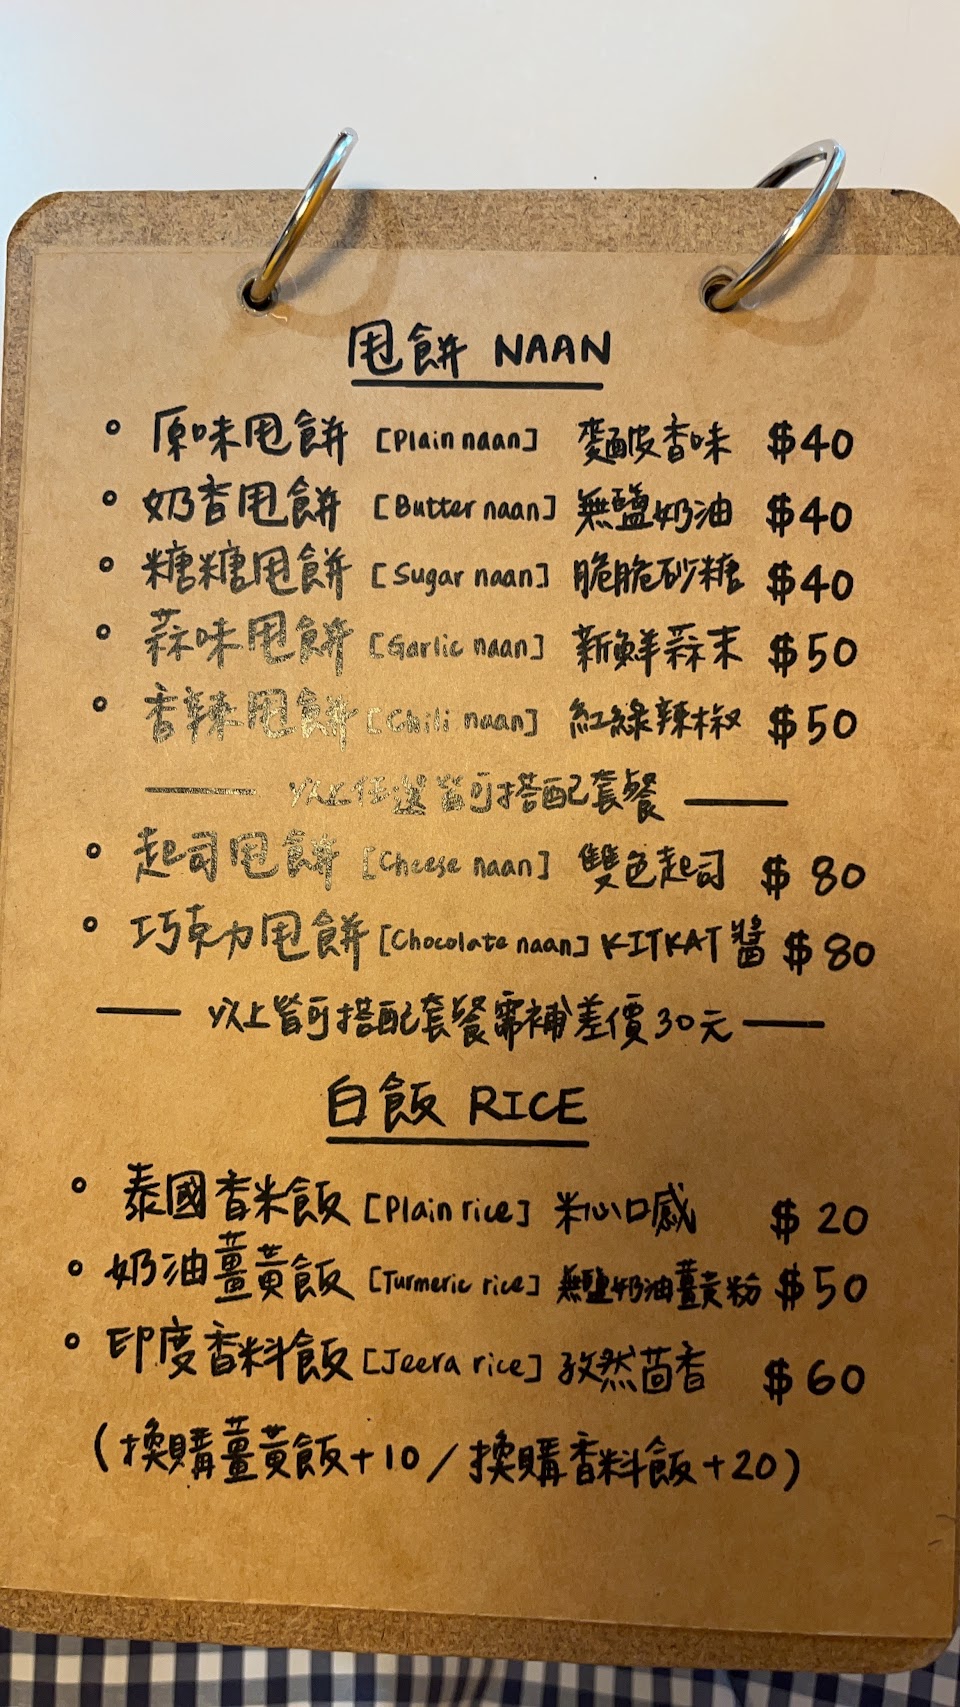 甩餅 NAAN
原味甩餅 [Plain naan] 麥麩皮香味 $40
奶香甩餅 [Butter naan] 無鹽奶油 $40
糖糖甩餅 [Sugar naan] 脆脆砂糖 $40
蒜味甩餅 [Garlic naan] 新鮮蒜末 $50
香辣甩餅 [Chili naan] 紅綠辣椒 $50
以上任選皆可搭配套餐
起司甩餅 [Cheese naan] 雙色起司 $80
巧克力甩餅 [Chocolate naan] KITKAT醬 $80
以上皆可搭配套餐需補差價30元
白飯 RICE
泰國香米飯 [Plain rice] 米心口感 $20
奶油薑黃飯 [Turmeric rice] 無鹽奶油薑黃粉 $50
印度香料飯 [Jeera rice] 孜然茴香 $60
(換購薑黃飯+10/換購香料飯+20)